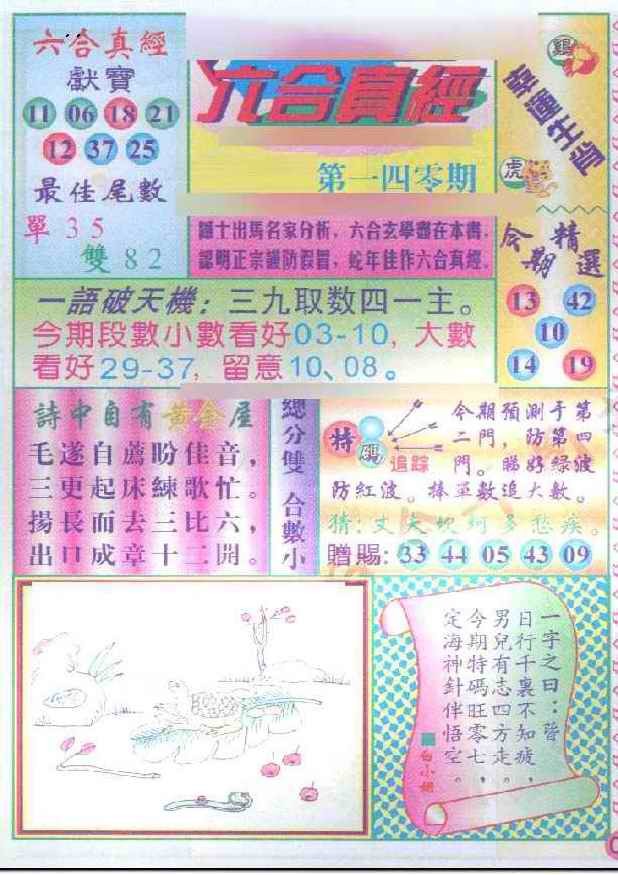 六合真經
獻寶
11 06 18 21
12 37 25
最佳尾數
單 3 5
雙 8 2
六合真經
第一四零期
鷄
虎
隱士出馬名家分析，六合玄學盡在本書，
認明正宗謹防假冒，蛇年佳作六合真經。
今期精選
13 42
10
14 19
一語破天機：三九取数四一主。
今期段數小數看好03-10，大數
看好29-37，留意10、08。
詩中自有黃金屋
毛遂自薦盼佳音，
三更起床練歌忙。
揚長而去三比六，
出口成章十二開。
總分雙 合數小
特碼
追踪
今期預測于第
二門，防第四
門。睇好綠波
防紅波。捧單數追大數。
猜：丈夫坎坷多愁疾。
贈賜：33 44 05 43 09
一字之曰：皆
日行千裏不知疲，
男兒有志四方走。
今期特碼旺零七，
定海神針伴悟空。
白小姐